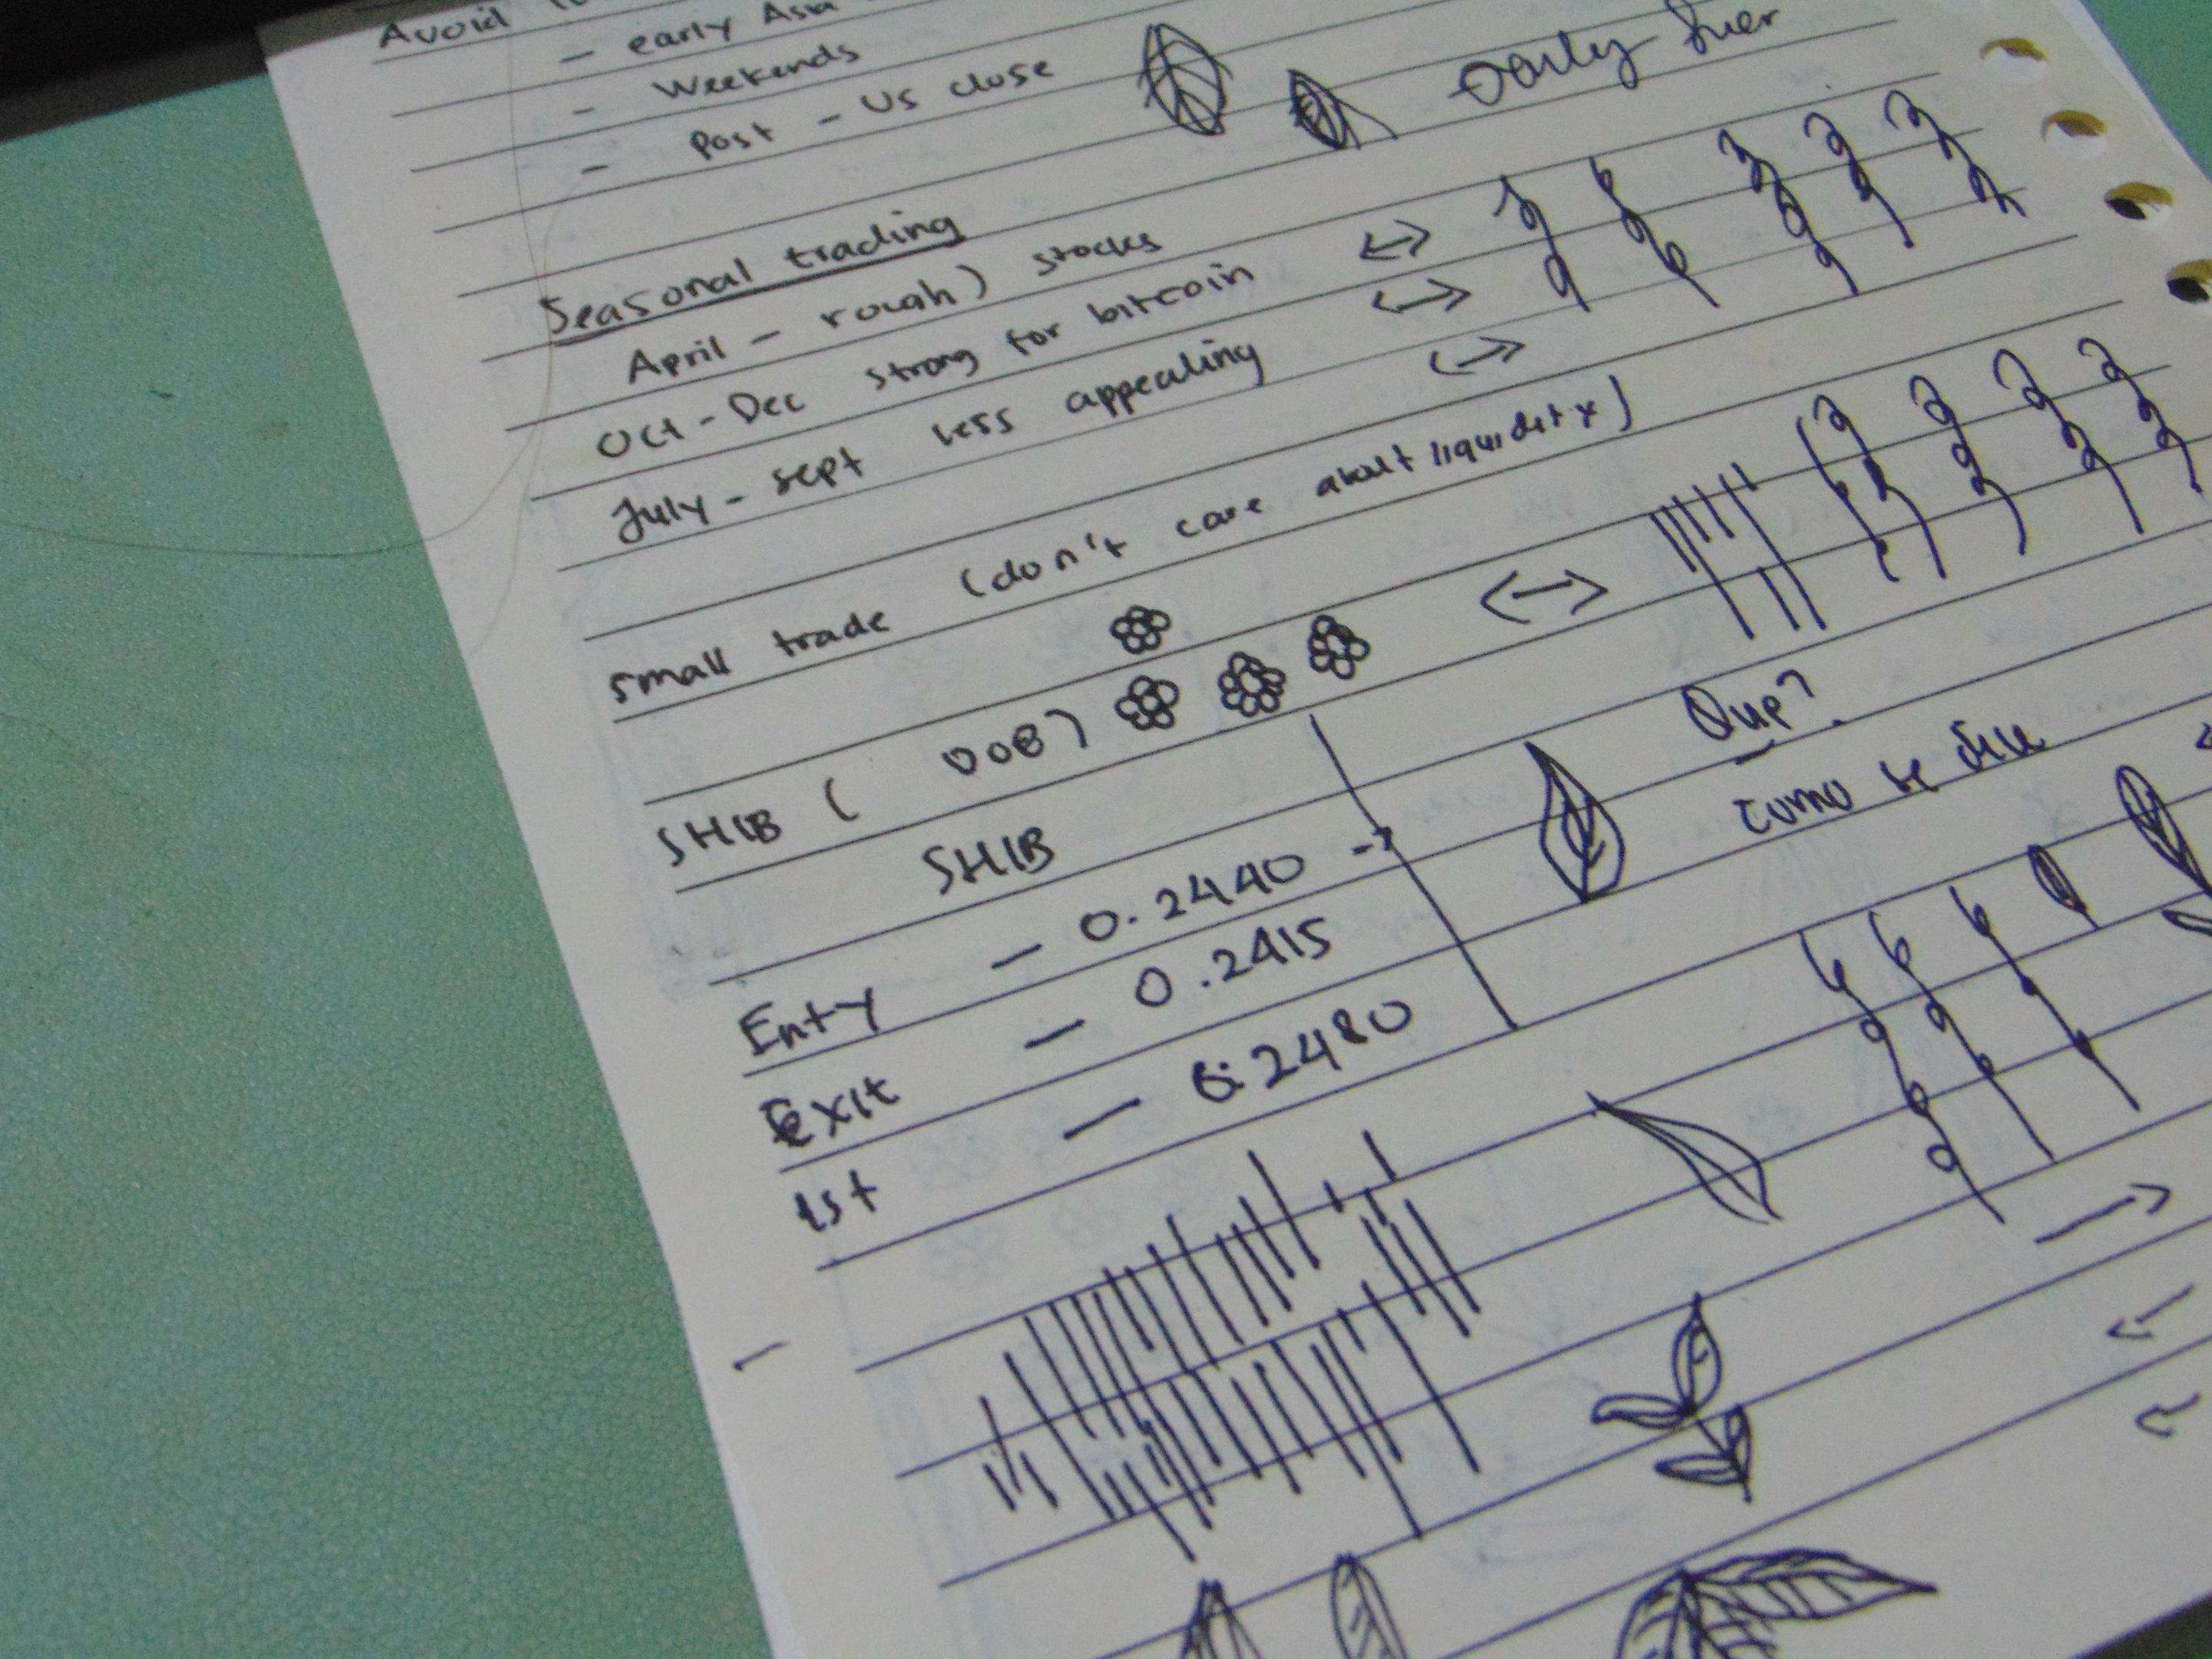 Avoid
- early Asia
- Weekends
- Post - US close
Seasonal trading
April - rough) stocks
Oct - Dec strong for bitcoin
July - sept less appealing
small trade (don't care about liquidity)
SHIB ( 008)
SHIB
Enty - 0.2440 →
Exit - 0.2415
1st - 0.2480
Que?
como se dice